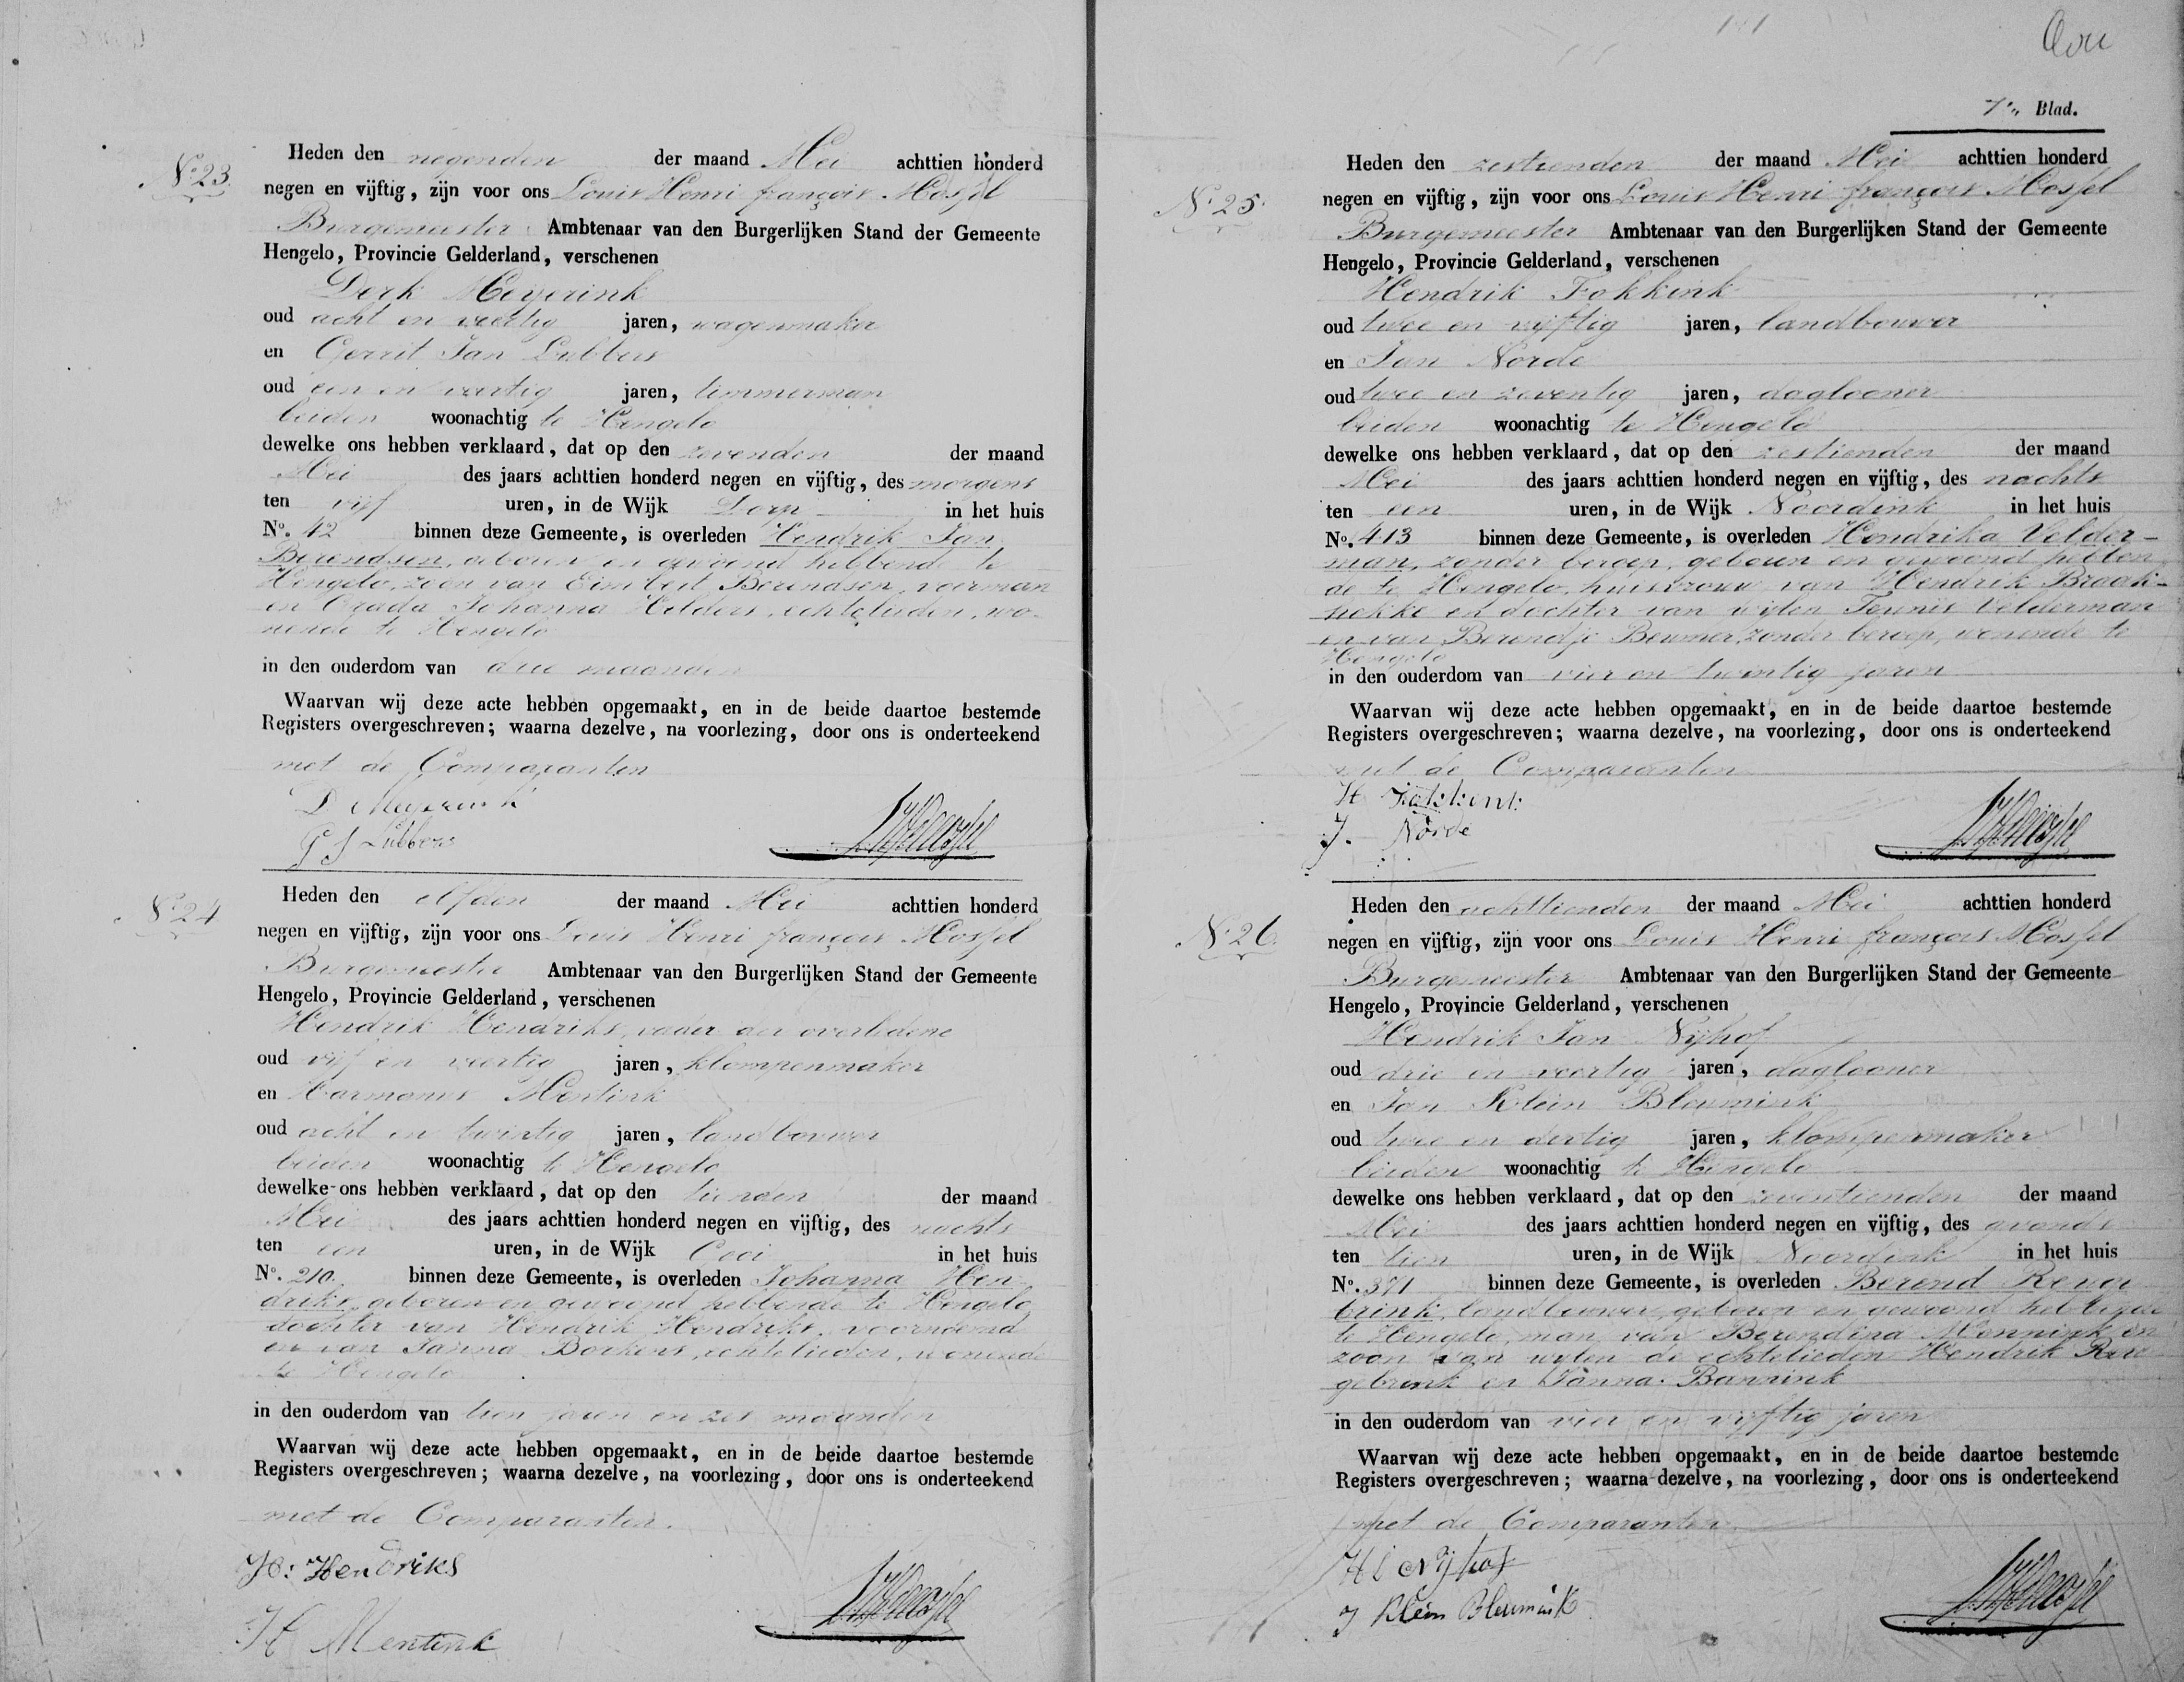 N.° 23.
Heden den negenden der maand Mei achttien honderd
negen en vijftig, zijn voor ons Louis Henri françois Mossel
Burgemeester Ambtenaar van den Burgerlijken Stand der Gemeente
Hengelo, Provincie Gelderland, verschenen
Derk Meyerink
oud acht en veertig jaren, wagenmaker
en Gerrit Jan Lubbers
oud een en veertig jaren, timmerman
beiden woonachtig te Hengelo
dewelke ons hebben verklaard, dat op den zevenden der maand
Mei des jaars achttien honderd negen en vijftig, des morgens
ten vijf uren, in de Wijk Dorp in het huis
N°. 42 binnen deze Gemeente, is overleden Hendrik Jan
Berendsen, geboren en gewoond hebbende te
Hengelo, zoon van Berendsen, voerman
en Johanna Helders, echtelieden, wo-
nende te Hengelo
in den ouderdom van drie maanden
Waarvan wij deze acte hebben opgemaakt, en in de beide daartoe bestemde
Registers overgeschreven; waarna dezelve, na voorlezing, door ons is onderteekend
met de Comparanten
D Meyerink
G J Lubbers
N.° 24
Heden den elfden der maand Mei achttien honderd
negen en vijftig, zijn voor ons Louis Henri françois Mossel
Burgemeester Ambtenaar van den Burgerlijken Stand der Gemeente
Hengelo, Provincie Gelderland, verschenen
Hendrik Hendriks, vader der overledene
oud vijf en veertig jaren, klompenmaker
en Harmanus Mentink
oud acht en twintig jaren, landbouwer
beiden woonachtig te Hengelo
dewelke ons hebben verklaard, dat op den tienden der maand
Mei des jaars achttien honderd negen en vijftig, des nachts
ten een uren, in de Wijk Gooi in het huis
N°. 210. binnen deze Gemeente, is overleden Johanna Hen-
driks, geboren en gewoond hebbende te Hengelo,
dochter van Hendrik Hendriks, voornoemd
en van Janna Borkens, echtelieden, wonende
te Hengelo
in den ouderdom van tien jaren en zes maanden
Waarvan wij deze acte hebben opgemaakt, en in de beide daartoe bestemde
Registers overgeschreven; waarna dezelve, na voorlezing, door ons is onderteekend
met de Comparanten.
H: Hendriks
H Mentink
7e Blad.
N.° 25.
Heden den zestienden der maand Mei achttien honderd
negen en vijftig, zijn voor ons Louis Henri françois Mossel
Burgemeester Ambtenaar van den Burgerlijken Stand der Gemeente
Hengelo, Provincie Gelderland, verschenen
Hendrik Fokkink
oud twee en vijftig jaren, landbouwer
en Jan Norde
oud twee en zeventig jaren, daglooner
beiden woonachtig te Hengelo
dewelke ons hebben verklaard, dat op den zestienden der maand
Mei des jaars achttien honderd negen en vijftig, des nachts
ten een uren, in de Wijk Noordink in het huis
N°. 413 binnen deze Gemeente, is overleden Hendrika Velder-
man, zonder beroep, geboren en gewoond hebben-
de te Hengelo, huisvrouw van Hendrik Braak-
hekke en dochter van wijlen Teunis Velderman
en van Berendje Beumer, zonder beroep, wonende te
Hengelo
in den ouderdom van vier en twintig jaren
Waarvan wij deze acte hebben opgemaakt, en in de beide daartoe bestemde
Registers overgeschreven; waarna dezelve, na voorlezing, door ons is onderteekend
met de Comparanten
H Fokkink
J. Norde
N.° 26.
Heden den achttienden der maand Mei achttien honderd
negen en vijftig, zijn voor ons Louis Henri françois Mossel
Burgemeester Ambtenaar van den Burgerlijken Stand der Gemeente
Hengelo, Provincie Gelderland, verschenen
Hendrik Jan Nijhof
oud drie en veertig jaren, daglooner
en Jan Klein Bleumink
oud twee en dertig jaren, klompenmaker
beiden woonachtig te Hengelo
dewelke ons hebben verklaard, dat op den zeventienden der maand
Mei des jaars achttien honderd negen en vijftig, des avonds
ten tien uren, in de Wijk Noordink in het huis
N°. 371 binnen deze Gemeente, is overleden Berend Reuge
brink, landbouwer, geboren en gewoond hebbende
te Hengelo, man van Berendina Mennink en
zoon van wijlen de echtelieden Hendrik Reu
gebrink en Janna Bannink
in den ouderdom van vier en vijftig jaren
Waarvan wij deze acte hebben opgemaakt, en in de beide daartoe bestemde
Registers overgeschreven; waarna dezelve, na voorlezing, door ons is onderteekend
met de Comparanten
H J Nijhof
J Klein Bleumink